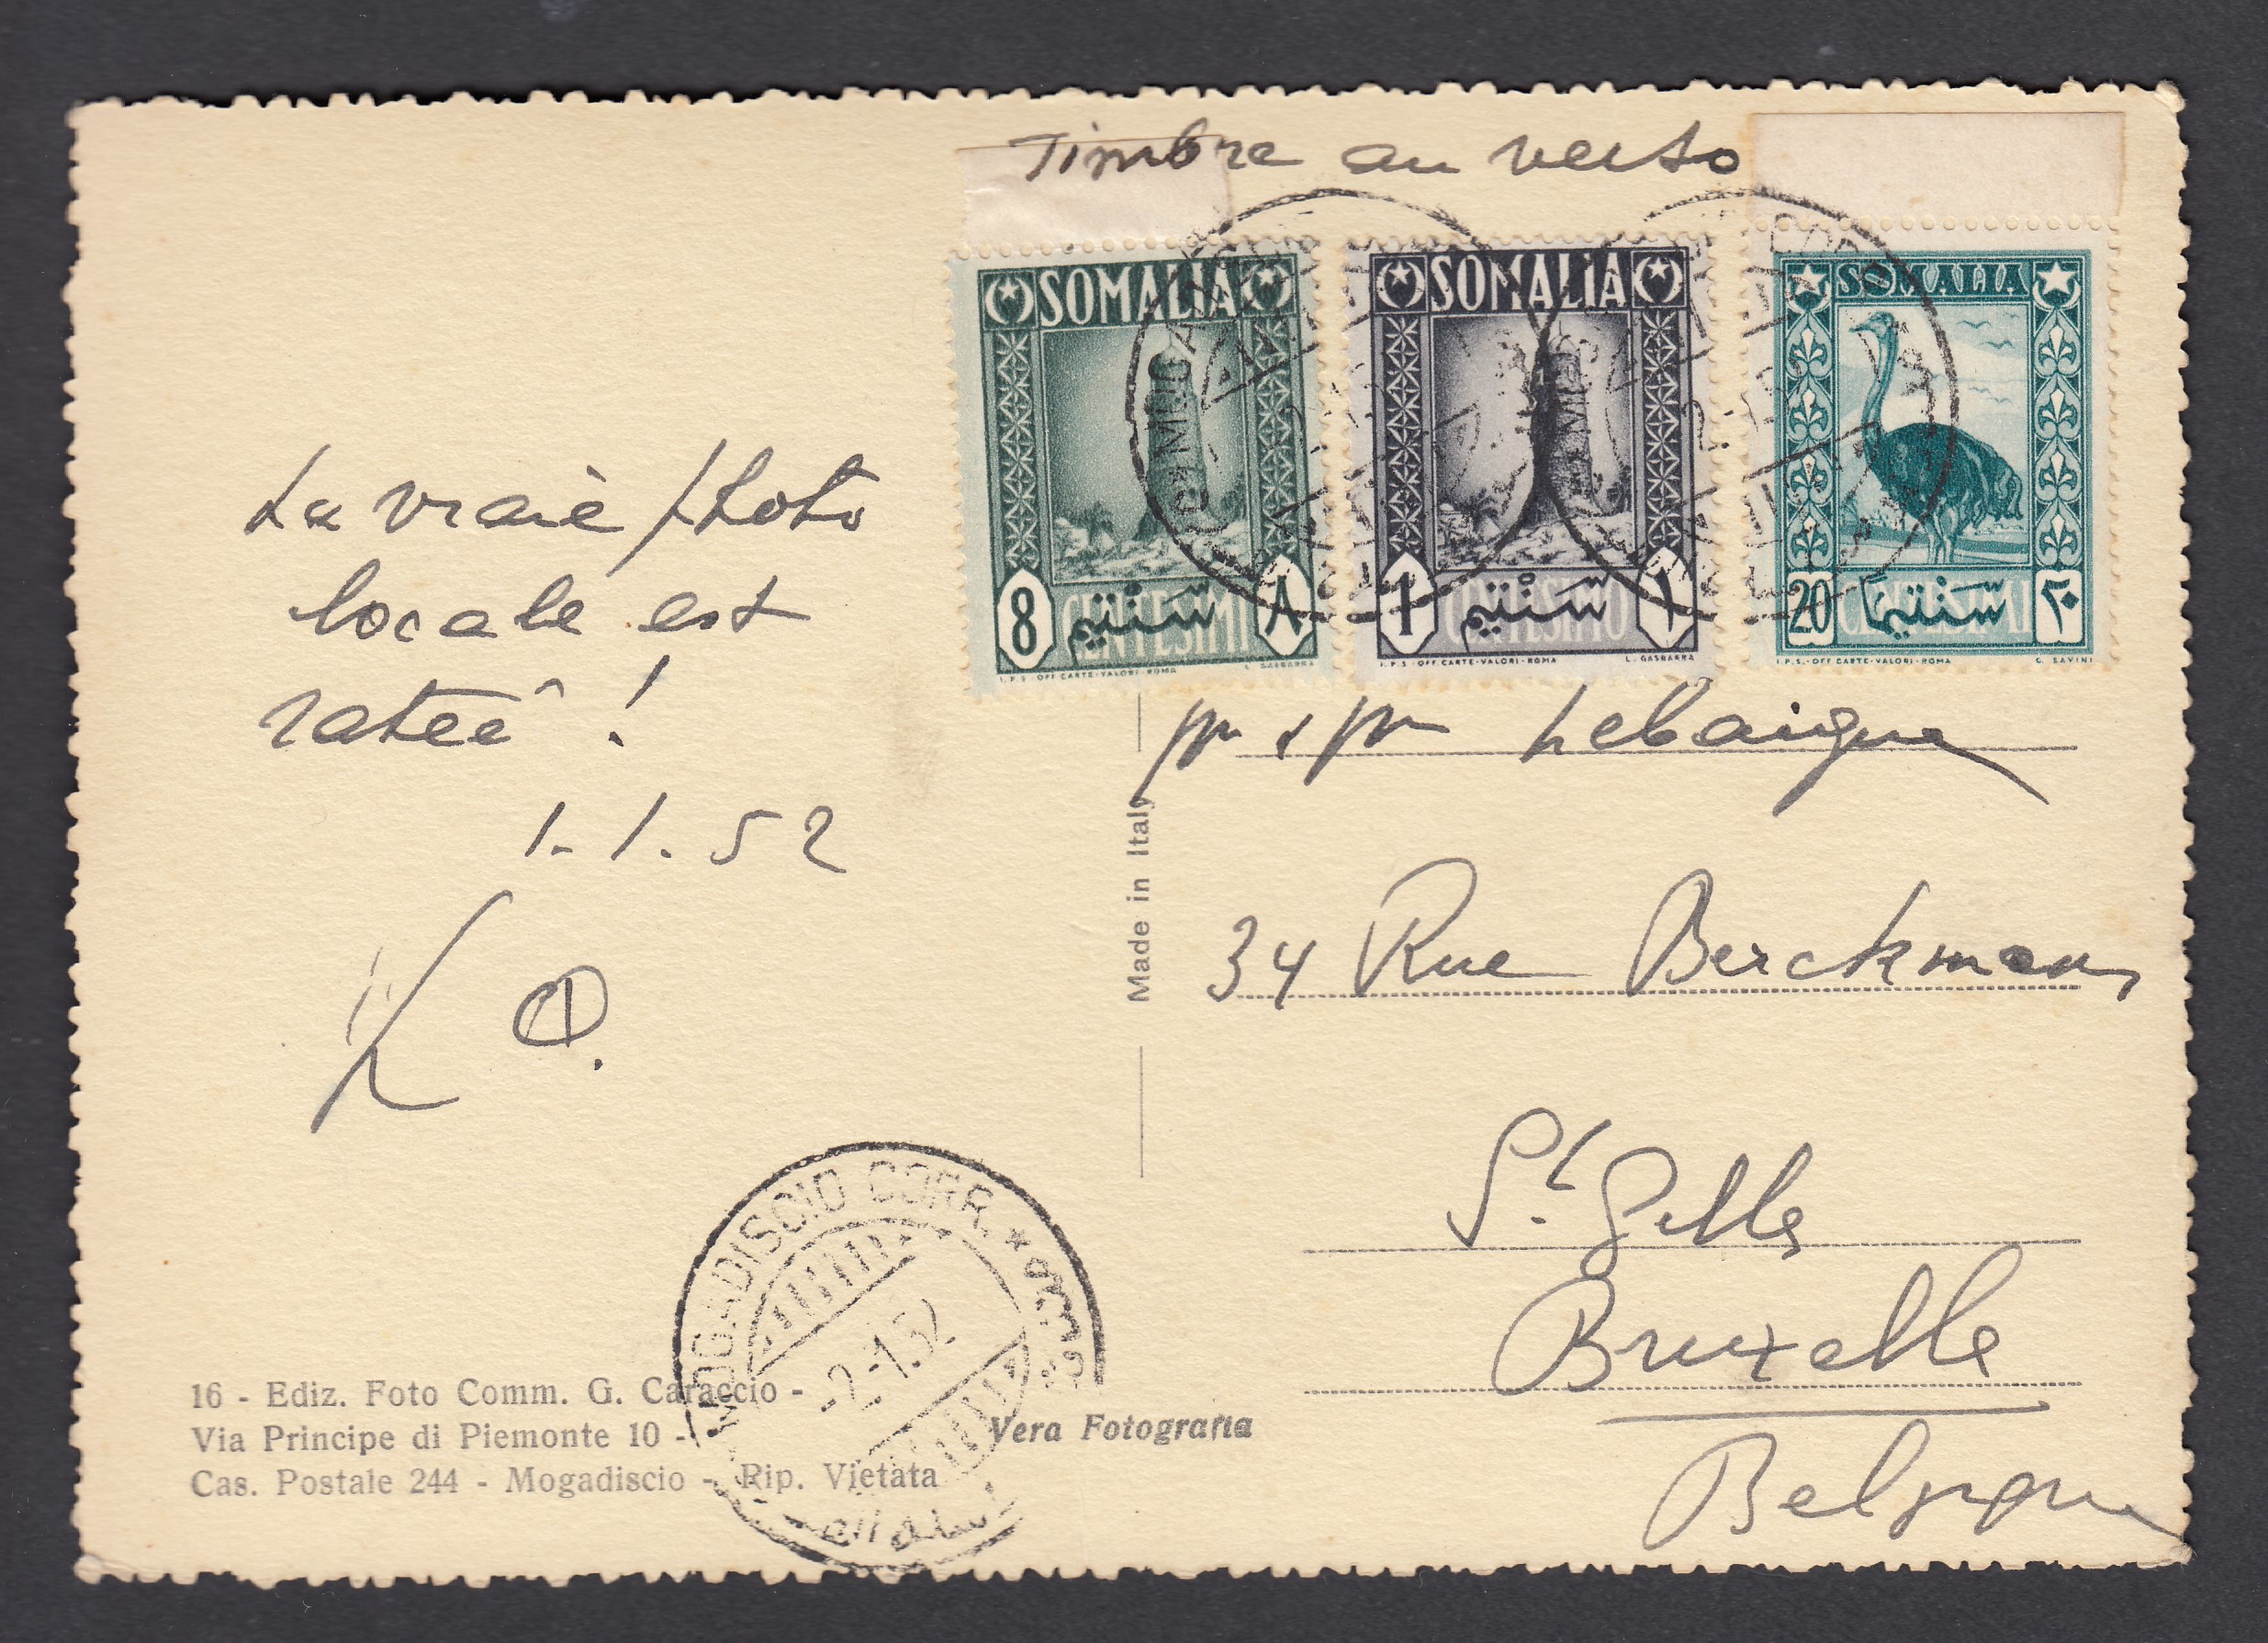 Timbre au verso
SOMALIA
8 CENTESIMI ٨
سنتيم
I.P.S - OFF. CARTE-VALORI - ROMA L. GASBARRA
SOMALIA
1 CENTESIMO ١
سنتيم
I.P.S - OFF. CARTE-VALORI - ROMA L. GASBARRA
SOMALIA
20 CENTESIMI ٢٠
سنتيما
I.P.S. - OFF CARTE-VALORI - ROMA G. SAVINI
La vraie photo
locale est
ratée !
1.1.52
Made in Italy
Lebaigue
34 Rue Berckmans
St. Gilles
Bruxelle
Belgique
MOGADISCIO CORR. *
-2-1.52
16 - Ediz. Foto Comm. G. Caraccio -
Via Principe di Piemonte 10 -
Cas. Postale 244 - Mogadiscio - Rip. Vietata
Vera Fotografia